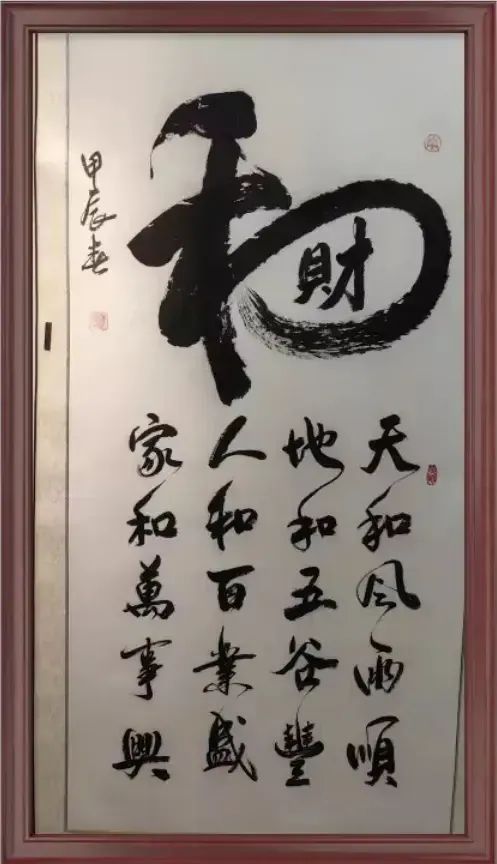 和
財
天和风雨順
地和五谷豐
人和百業盛
家和萬事興
甲辰春